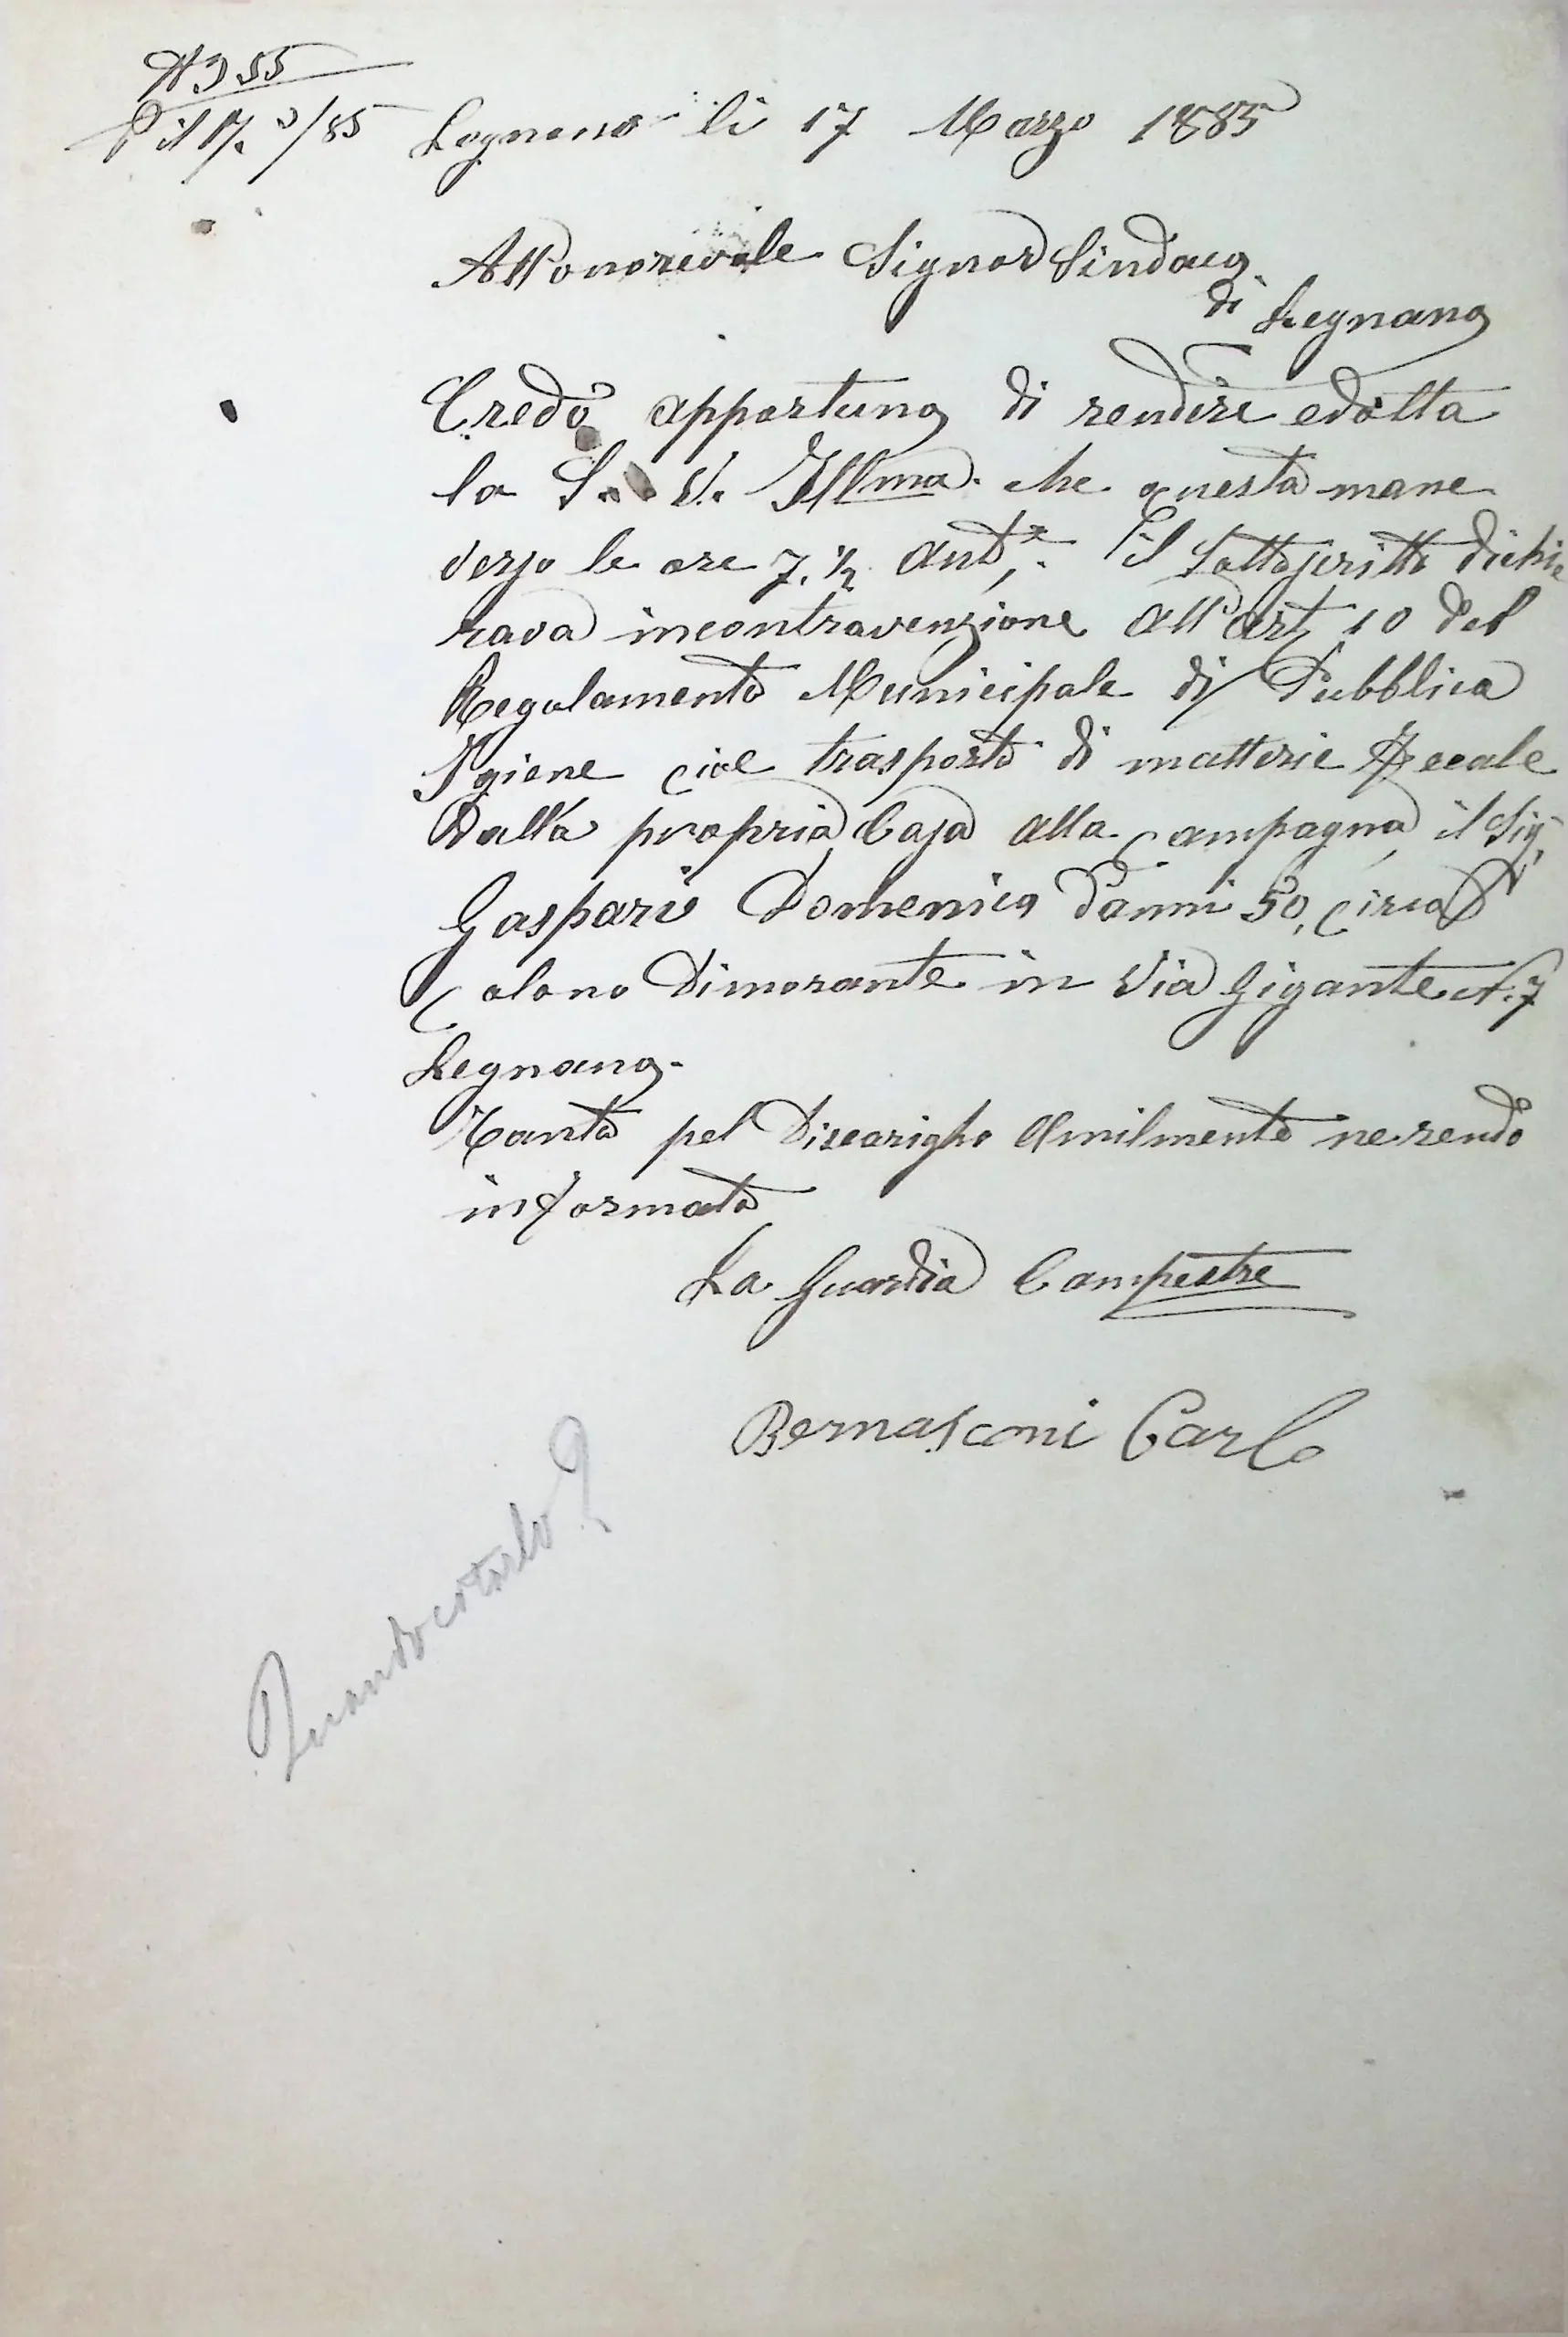 N 355
P. il 17. 3/85
Legnano li 17 Marzo 1885
All'onorevole Signor Sindaco
di Legnano
Credo opportuno di rendere edotta
la S. V. Illma. che questa mane
verso le ore 7. 1/2 ante. il Sottoscritto dichia
rava incontravenzione all'art 10 del
Regolamento Municipale di Pubblica
Igiene cioe trasporto di matterie fecale
dalla propria Casa alla campagna il Sig.
Gaspari Domenico d'anni 50, circa
Colono dimorante in Via Gigante N. 7
Legnano.
Tanto pel discarigho Umilmente ne rendo
informato
La Guardia Campestre
Bernasconi Carlo
Quando cotarlo?